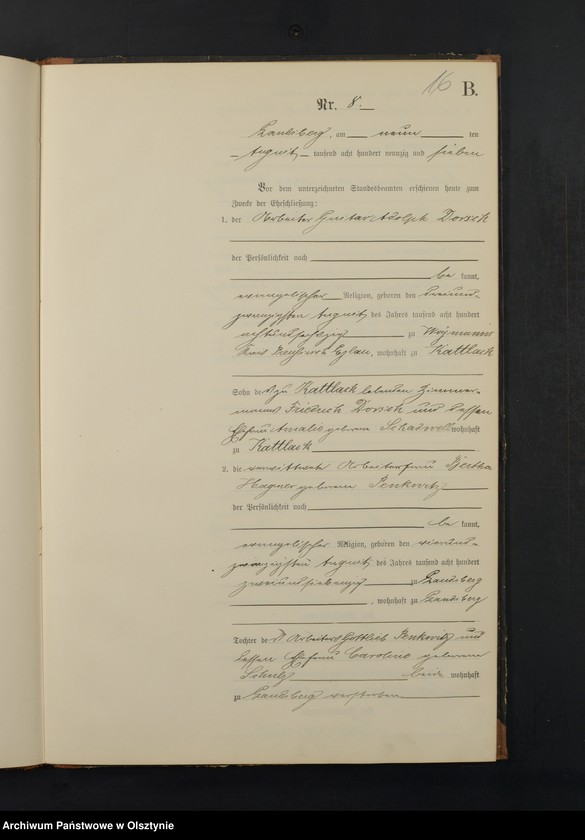 16 B.
Nr. 8.
Landsberg, am neun ten
August tausend acht hundert neunzig und sieben
Vor dem unterzeichneten Standesbeamten erschienen heute zum
Zwecke der Eheschließung:
1. der Arbeiter Gustav Adolph Dorsch
der Persönlichkeit nach
be kannt,
evangelischer Religion, geboren den dreiund-
zwanzigsten August des Jahres tausend acht hundert
achtundsechzig zu
Kreis Preußisch Eylau, wohnhaft zu Kattlack
Sohn des zu Kattlack lebenden Zimmer-
manns Friedrich Dorsch und dessen
Ehefrau Amalie geborene wohnhaft
zu Kattlack
2. die verwittwete Arbeiterfrau Bertha
Wagner geborene Penkwitz
der Persönlichkeit nach
be kannt,
evangelischer Religion, geboren den vierund-
zwanzigsten August des Jahres tausend acht hundert
zweiundsiebenzig zu Landsberg
, wohnhaft zu Landsberg
Tochter des Arbeiters Gottlieb Penkwitz und
dessen Ehefrau Caroline geborene
Schulz beide wohnhaft
zu Landsberg verstorben
Archiwum Państwowe w Olsztynie